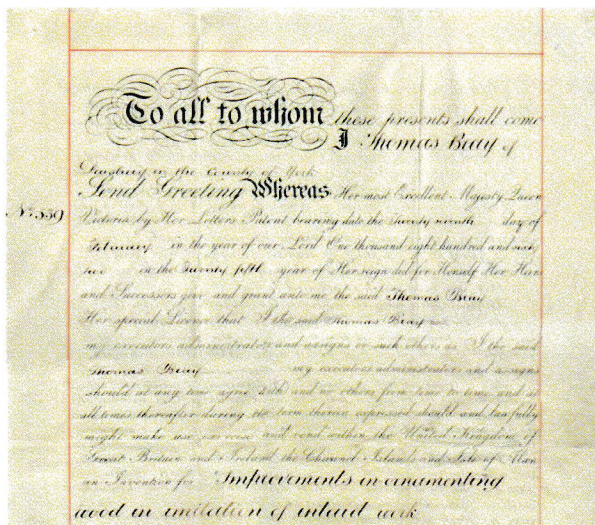 To all to whom these presents shall come
I Thomas Bray of
Dewsbury in the County of York
Send Greeting Whereas Her most Excellent Majesty Queen
No. 559
Victoria by Her Letters Patent bearing date the twenty seventh day of
February in the year of our Lord One thousand eight hundred and sixty
two in the twenty fifth year of Her reign did for Herself Her Heirs
and Successors give and grant unto me the said Thomas Bray
Her special Licence that I the said Thomas Bray
my executors administrators and assigns or such others as I the said
Thomas Bray my executors administrators and assigns
should at any time agree with and no others from time to time and at
all times thereafter during the term therein expressed should and lawfully
might make use exercise and vend within the United Kingdom of
Great Britain and Ireland the Channel Islands and Isle of Man
an Invention for "Improvements in ornamenting
wood in imitation of inlaid work